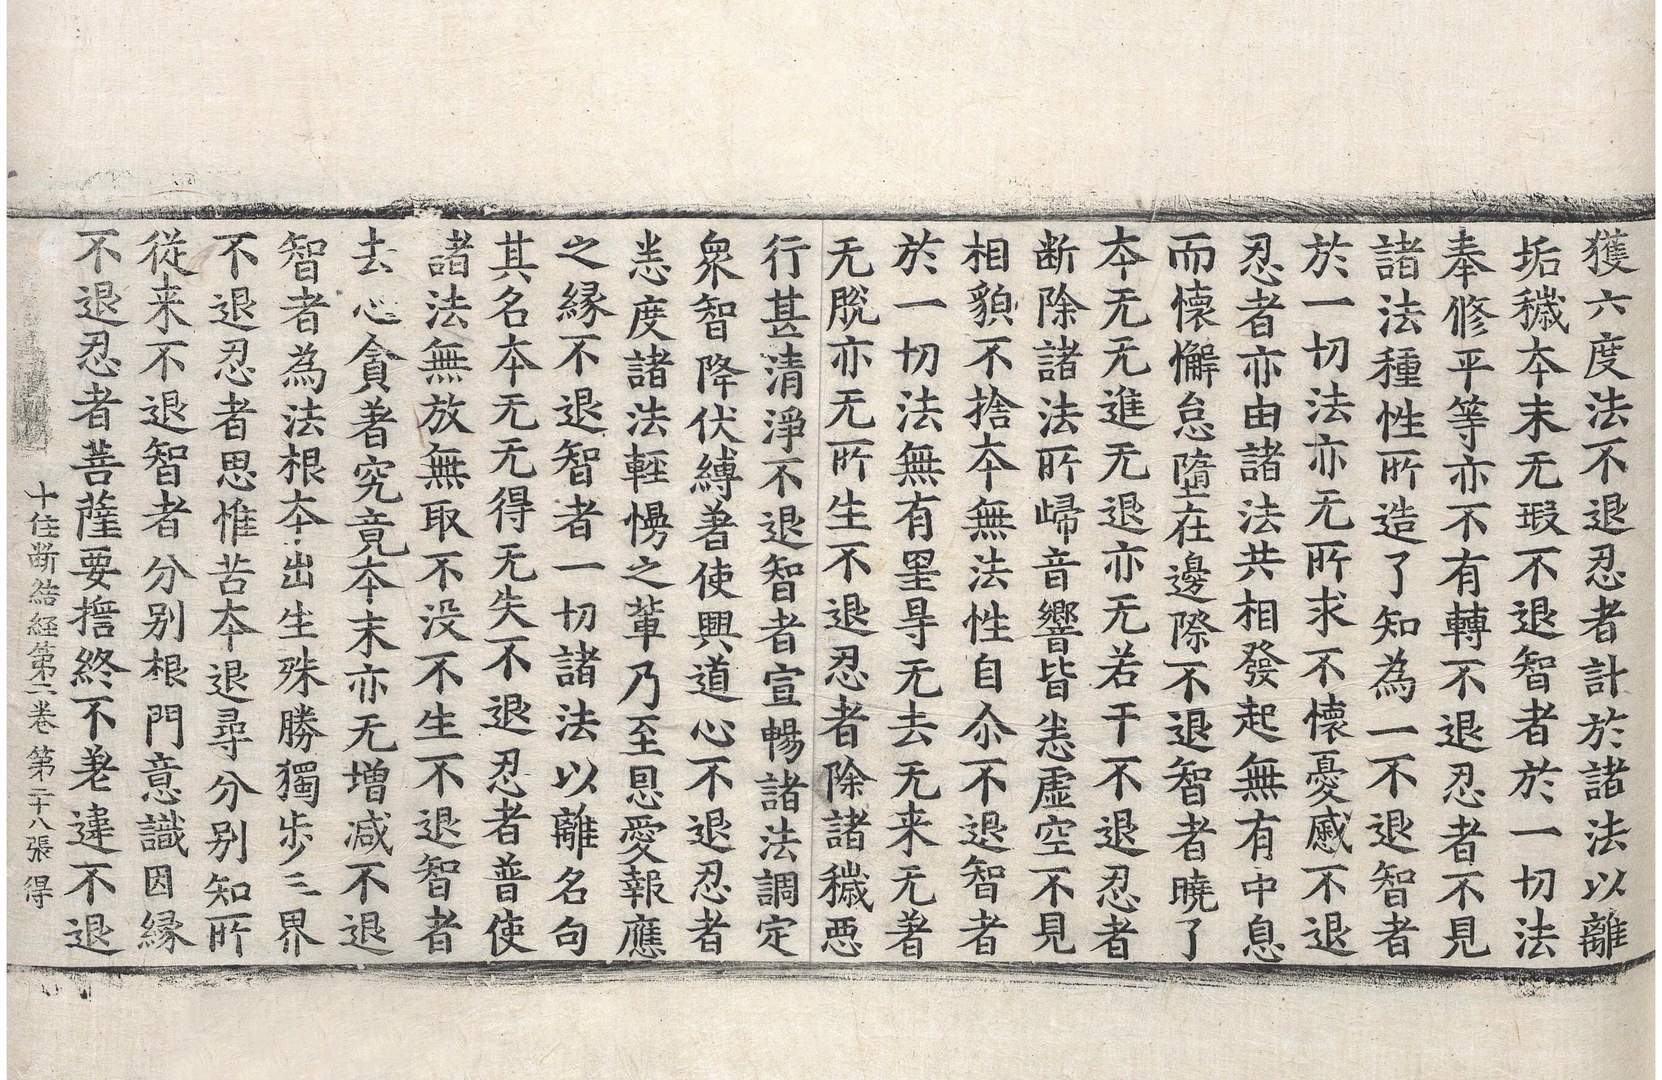 獲六度法不退忍者計於諸法以離
垢穢夲末无瑕不退智者於一切法
奉修平等亦不有轉不退忍者不見
諸法種性所造了知為一不退智者
於一切法亦无所求不懷憂慼不退
忍者亦由諸法共相發起無有中息
而懷懈怠墮在邊際不退智者曉了
夲无无進无退亦无若干不退忍者
断除諸法所歸音響皆悉虛空不見
相貌不捨夲無法性自尒不退智者
於一切法無有罣㝵无去无来无著
无脫亦无所生不退忍者除諸穢惡
行甚清淨不退智者宣暢諸法調定
衆智降伏縛著使興道心不退忍者
悉度諸法輕慢之輩乃至恩愛報應
之縁不退智者一切諸法以離名句
其名夲无无得无失不退忍者普使
諸法無放無取不没不生不退智者
去心貪著究竟夲末亦无增減不退
智者為法根夲出生殊勝獨步三界
不退忍者思惟苦夲退尋分別知所
從来不退智者分別根門意識因縁
不退忍者菩薩要誓終不差違不退
十住斷結經第二卷 第二十八張 得